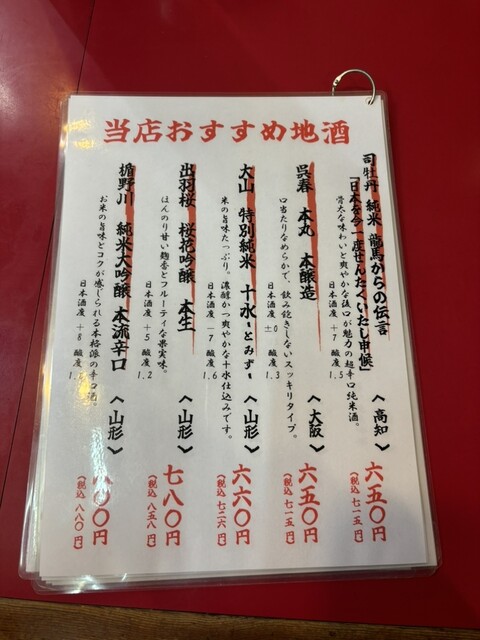 当店おすすめ地酒
司牡丹 純米 龍馬からの伝言
「日本を今一度せんたくいたし申候」
〈高知〉
六五〇円
(税込 七一五円)
骨太な味わいと爽やかな後口が魅力の超辛口純米酒。
日本酒度 +7 酸度 1.5
呉春 本丸 本醸造
〈大阪〉
六五〇円
(税込 七一五円)
口当たりなめらかで、飲み飽きしないスッキリタイプ。
日本酒度 ±0 酸度 1.3
大山 特別純米 十水~とみず~
〈山形〉
六六〇円
(税込 七二六円)
米の旨味たっぷり。濃醇かつ爽やかな十水仕込みです。
日本酒度 -7 酸度 1.6
出羽桜 桜花吟醸 本生
〈山形〉
七八〇円
(税込 八五八円)
ほんのり甘い麹香とフルーティな果実味。
日本酒度 +5 酸度 1.2
楯野川 純米大吟醸 本流辛口
〈山形〉
〇〇円
(税込 八八〇円)
お米の旨味とコクが感じられる本格派の辛口酒。
日本酒度 +8 酸度 1.